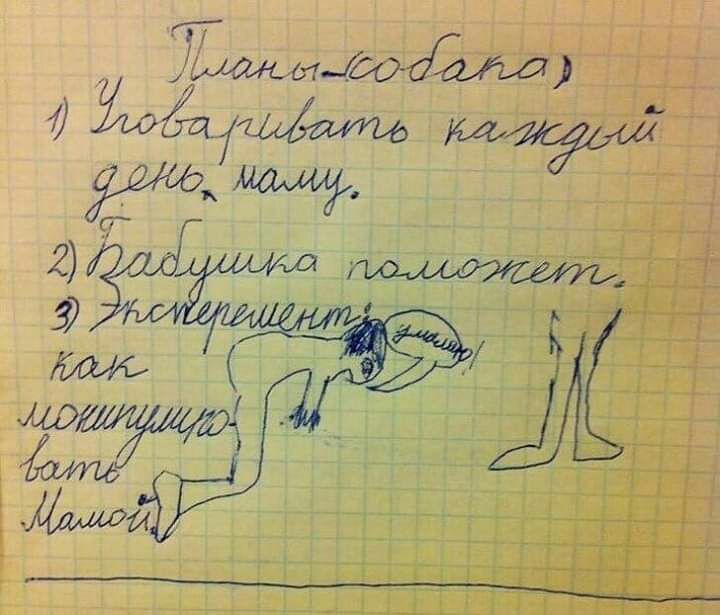 Планы (собака)
1) Уговаривать каждый
день маму.
2) Бабушка поможет.
3) Эксперемент:
как
монипулиро-
вать
Мамой.
умоляю!